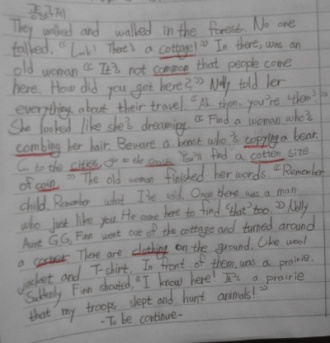 They walked and walked in the forest. No one
talked. "Look! There's a cottage!" In there, was an
old woman "It's not common that people come
here. How did you get here?" Nelly told her
everything about their travel. "Ah then.. you're then..."
She looked like she's dreaming. "Find a woman who's
combing her hair. Beware a beast who's copying a bear.
to the You'll find a cotton size
of coin." The old woman finished her words. "Remember
child. Remember what I've said. Once there was a man
who just like you He came here to find 'that' too." Nelly
Aunt G.G, Finn went out of the cottage and turned around
a corner There are clothing on the ground. Like wool
jacket and T-shirt. In front of them, was a prairie.
Suddenly Finn shouted, "I know here! It's a prairie
that my troops slept and hunt animals!"
-To be continue-